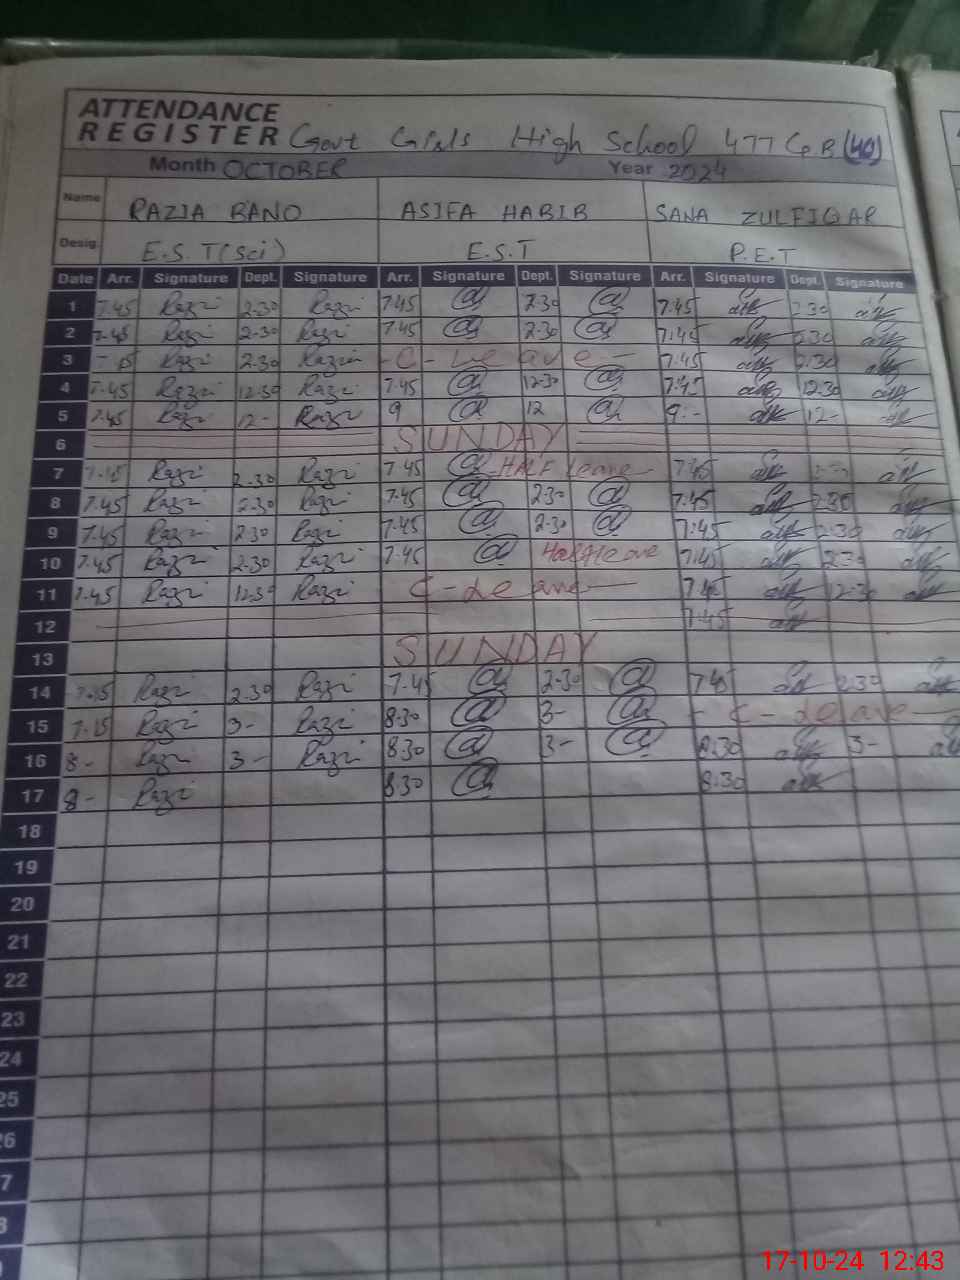 ATTENDANCE
REGISTER Govt Girls High School 477 G.B (40)
Month OCTOBER Year 2024
Name RAZIA BANO ASIFA HABIB SANA ZULFIQAR
Desig. E.S.T(Sci) E.S.T P.E.T
Date Arr. Signature Dept. Signature Arr. Signature Dept. Signature Arr. Signature Dept. Signature
1 7.45 Razi 2.30 Razi 7.45 2.30 7.45 2.30
2 7.45 Razi 2.30 Razi 7.45 2.30 7:45 2.30
3 Razi 2.30 Razi - C - Leave - 7.45 2.30
4 7.45 Razi 12.30 Razi 7.45 12.30 7.45 12.30
5 7.45 Razi 12- Razi 9 12 9:- 12-
6 SUNDAY
7 Razi 2.30 Razi 7.45 HALF leave 7.45
8 7.45 Razi 2.30 Razi 7.45 2.30 7.45 2.30
9 7.45 Razi 2.30 Razi 7.45 2.30 7.45 2.30
10 7.45 Razi 2.30 Razi 7.45 Half leave 7.45 2.30
11 7.45 Razi 12.30 Razi C - Leave - 7.45 12.30
12 7.45
13 SUNDAY
14 Razi 2.30 Razi 7.45 2.30 7.45 2.30
15 7.15 Razi 3- Razi 8.30 3- - C - Leave -
16 8- Razi 3- Razi 8.30 3- 8.30 3-
17 8- Razi 8.30 8.30
18
19
20
21
22
23
24
25
17-10-24 12:43